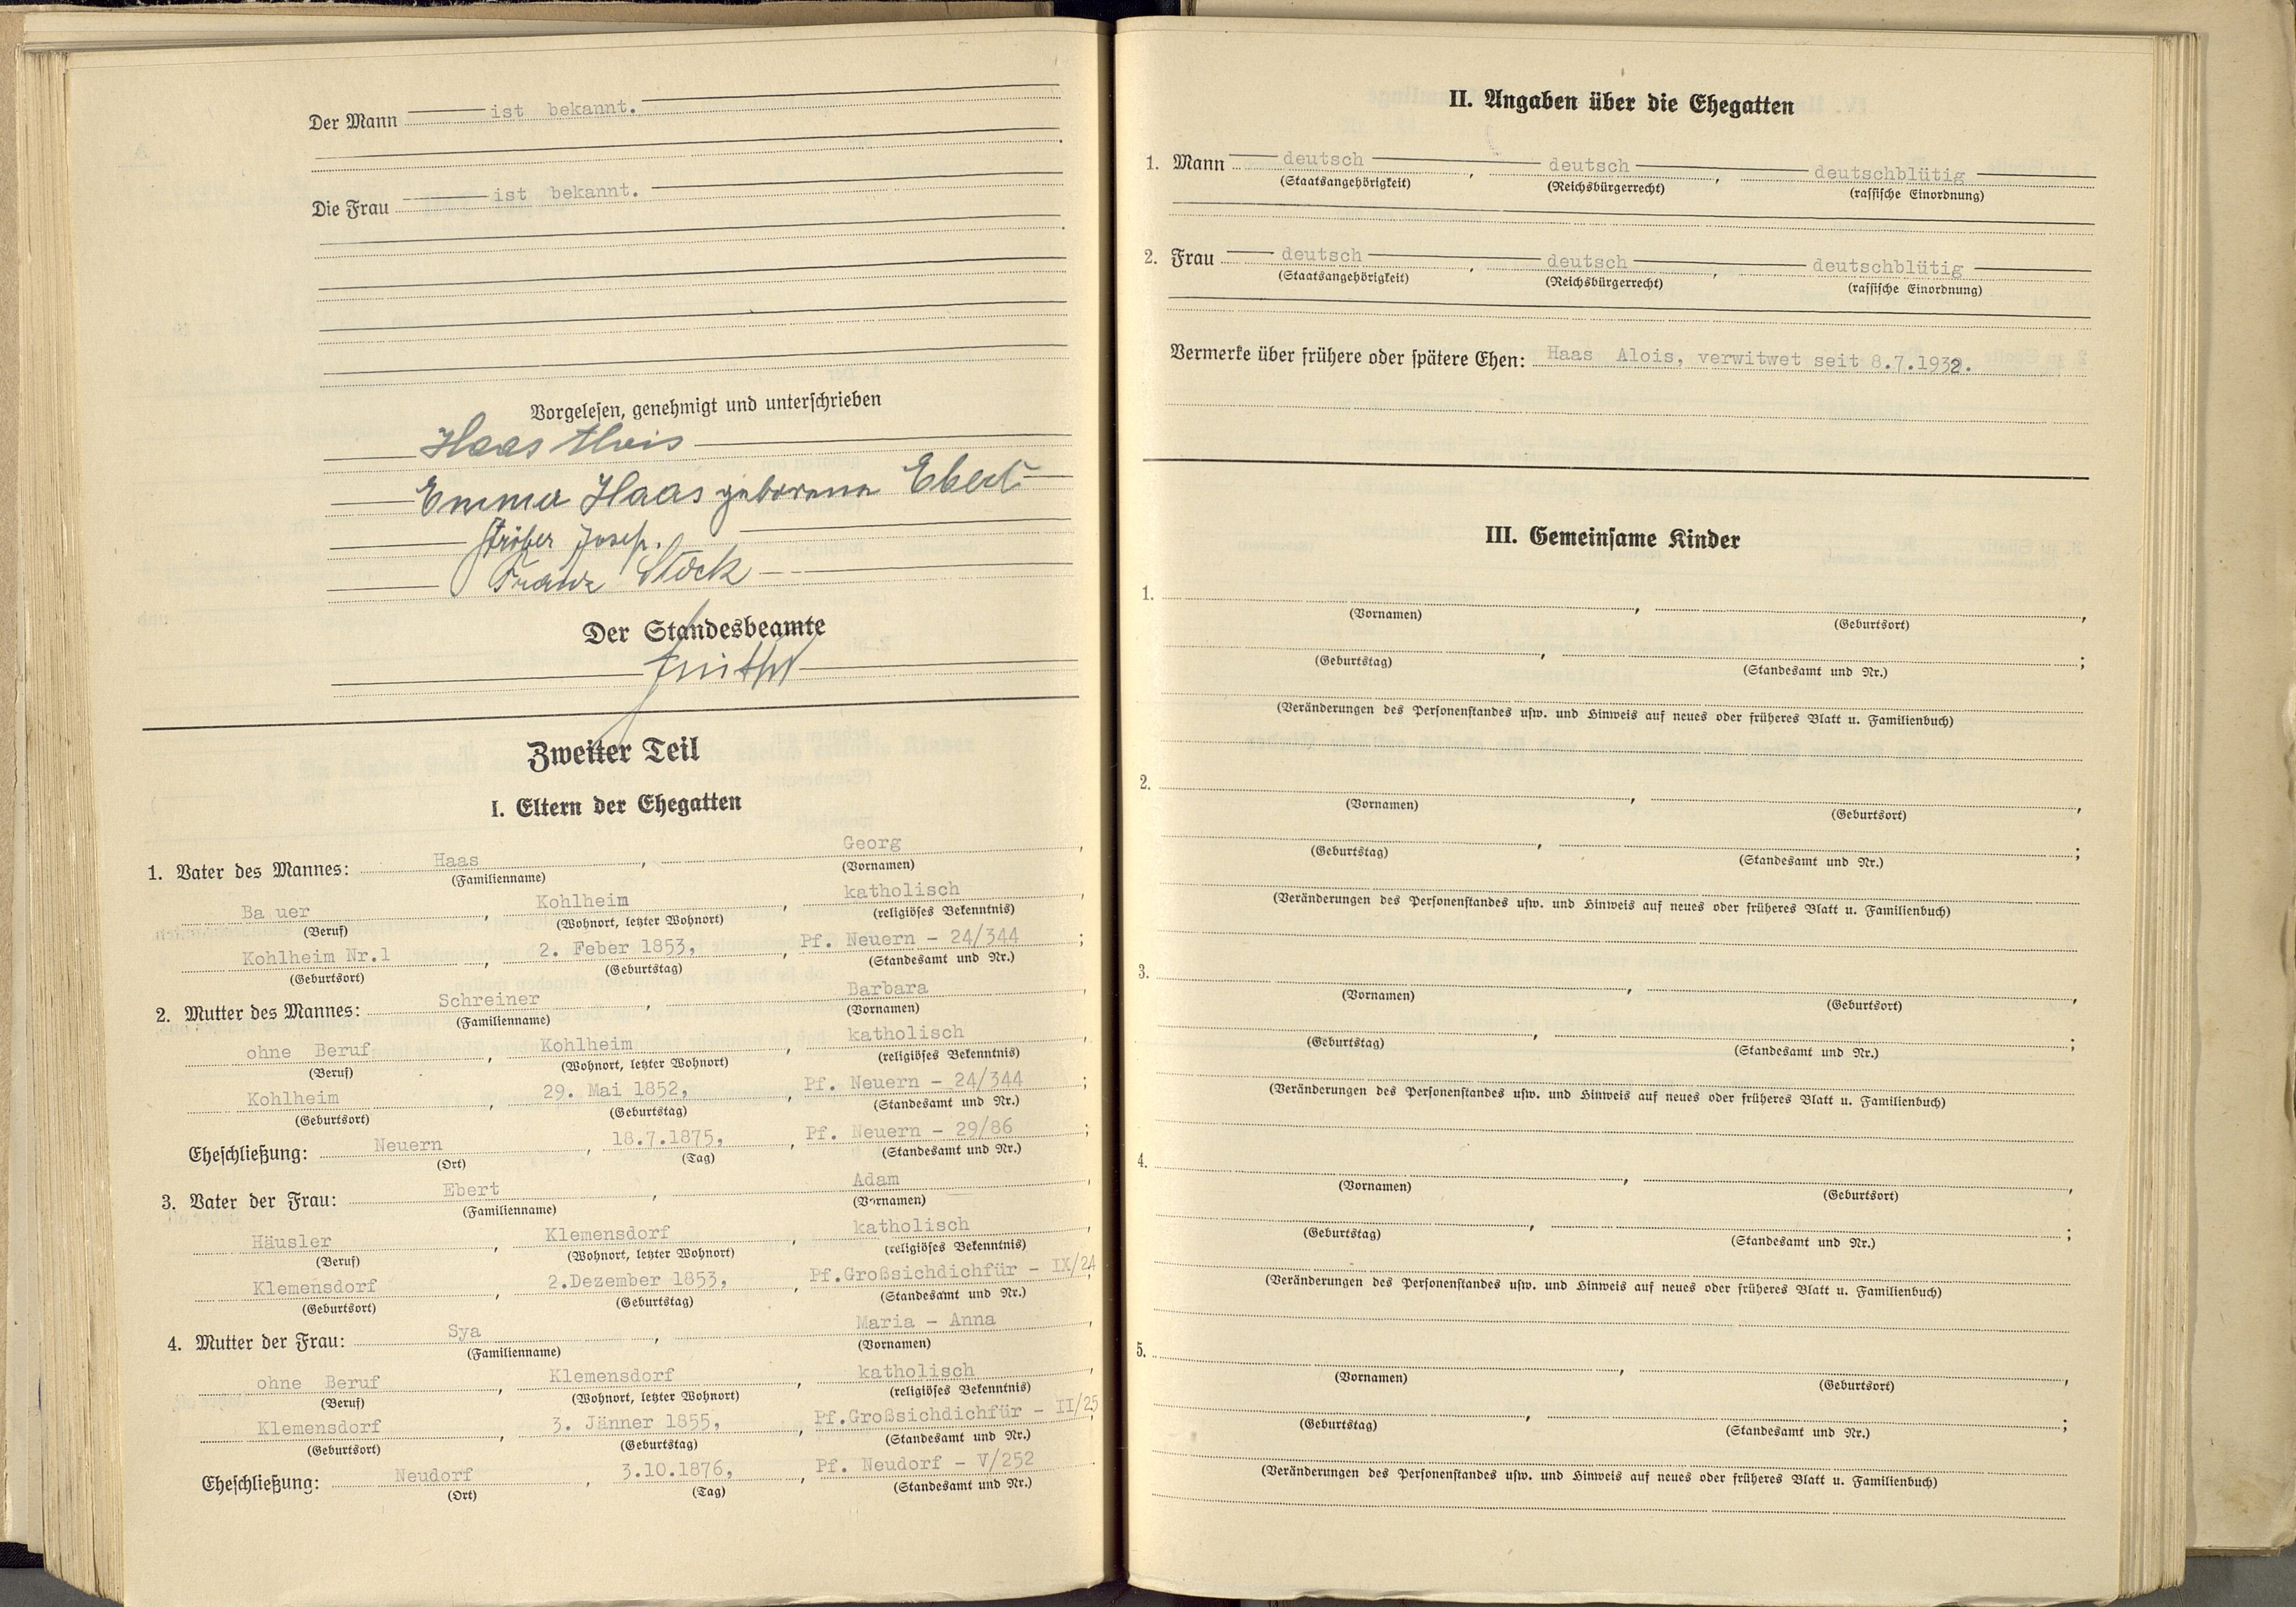 Der Mann ist bekannt.
Die Frau ist bekannt.
Vorgelesen, genehmigt und unterschrieben
Haas Alois
Emma Haas geborene Ebert
Josef.
Franz Stöck
Der Standesbeamte
Zweiter Teil
I. Eltern der Ehegatten
1. Vater des Mannes: Haas, Georg,
(Familienname) (Vornamen)
Ba uer, Kohlheim, katholisch,
(Beruf) (Wohnort, letzter Wohnort) (religiöses Bekenntnis)
Kohlheim Nr.1, 2. Feber 1853,, Pf. Neuern - 24/344;
(Geburtsort) (Geburtstag) (Standesamt und Nr.)
2. Mutter des Mannes: Schreiner, Barbara,
(Familienname) (Vornamen)
ohne Beruf, Kohlheim, katholisch,
(Beruf) (Wohnort, letzter Wohnort) (religiöses Bekenntnis)
Kohlheim, 29. Mai 1852,, Pf. Neuern - 24/344;
(Geburtsort) (Geburtstag) (Standesamt und Nr.)
Eheschließung: Neuern, 18.7.1875,, Pf. Neuern - 29/86;
(Ort) (Tag) (Standesamt und Nr.)
3. Vater der Frau: Ebert, Adam,
(Familienname) (Vornamen)
Häusler, Klemensdorf, katholisch,
(Beruf) (Wohnort, letzter Wohnort) (religiöses Bekenntnis)
Klemensdorf, 2.Dezember 1853,, Pf.Großsichdichfür - IX/24;
(Geburtsort) (Geburtstag) (Standesamt und Nr.)
4. Mutter der Frau: Sya, Maria - Anna,
(Familienname) (Vornamen)
ohne Beruf, Klemensdorf, katholisch,
(Beruf) (Wohnort, letzter Wohnort) (religiöses Bekenntnis)
Klemensdorf, 3. Jänner 1855,, Pf.Großsichdichfür - II/25;
(Geburtsort) (Geburtstag) (Standesamt und Nr.)
Eheschließung: Neudorf, 3.10.1876,, Pf. Neudorf - V/252
(Ort) (Tag) (Standesamt und Nr.)
II. Angaben über die Ehegatten
1. Mann deutsch, deutsch, deutschblütig
(Staatsangehörigkeit) (Reichsbürgerrecht) (rassische Einordnung)
2. Frau deutsch, deutsch, deutschblütig
(Staatsangehörigkeit) (Reichsbürgerrecht) (rassische Einordnung)
Vermerke über frühere oder spätere Ehen: Haas Alois, verwitwet seit 8.7.1932.
III. Gemeinsame Kinder
1. , ,
(Vornamen) (Geburtsort)
, ;
(Geburtstag) (Standesamt und Nr.)
(Veränderungen des Personenstandes usw. und Hinweis auf neues oder früheres Blatt u. Familienbuch)
2. , ,
(Vornamen) (Geburtsort)
, ;
(Geburtstag) (Standesamt und Nr.)
(Veränderungen des Personenstandes usw. und Hinweis auf neues oder früheres Blatt u. Familienbuch)
3. , ,
(Vornamen) (Geburtsort)
, ;
(Geburtstag) (Standesamt und Nr.)
(Veränderungen des Personenstandes usw. und Hinweis auf neues oder früheres Blatt u. Familienbuch)
4. , ,
(Vornamen) (Geburtsort)
, ;
(Geburtstag) (Standesamt und Nr.)
(Veränderungen des Personenstandes usw. und Hinweis auf neues oder früheres Blatt u. Familienbuch)
5. , ,
(Vornamen) (Geburtsort)
, ;
(Geburtstag) (Standesamt und Nr.)
(Veränderungen des Personenstandes usw. und Hinweis auf neues oder früheres Blatt u. Familienbuch)